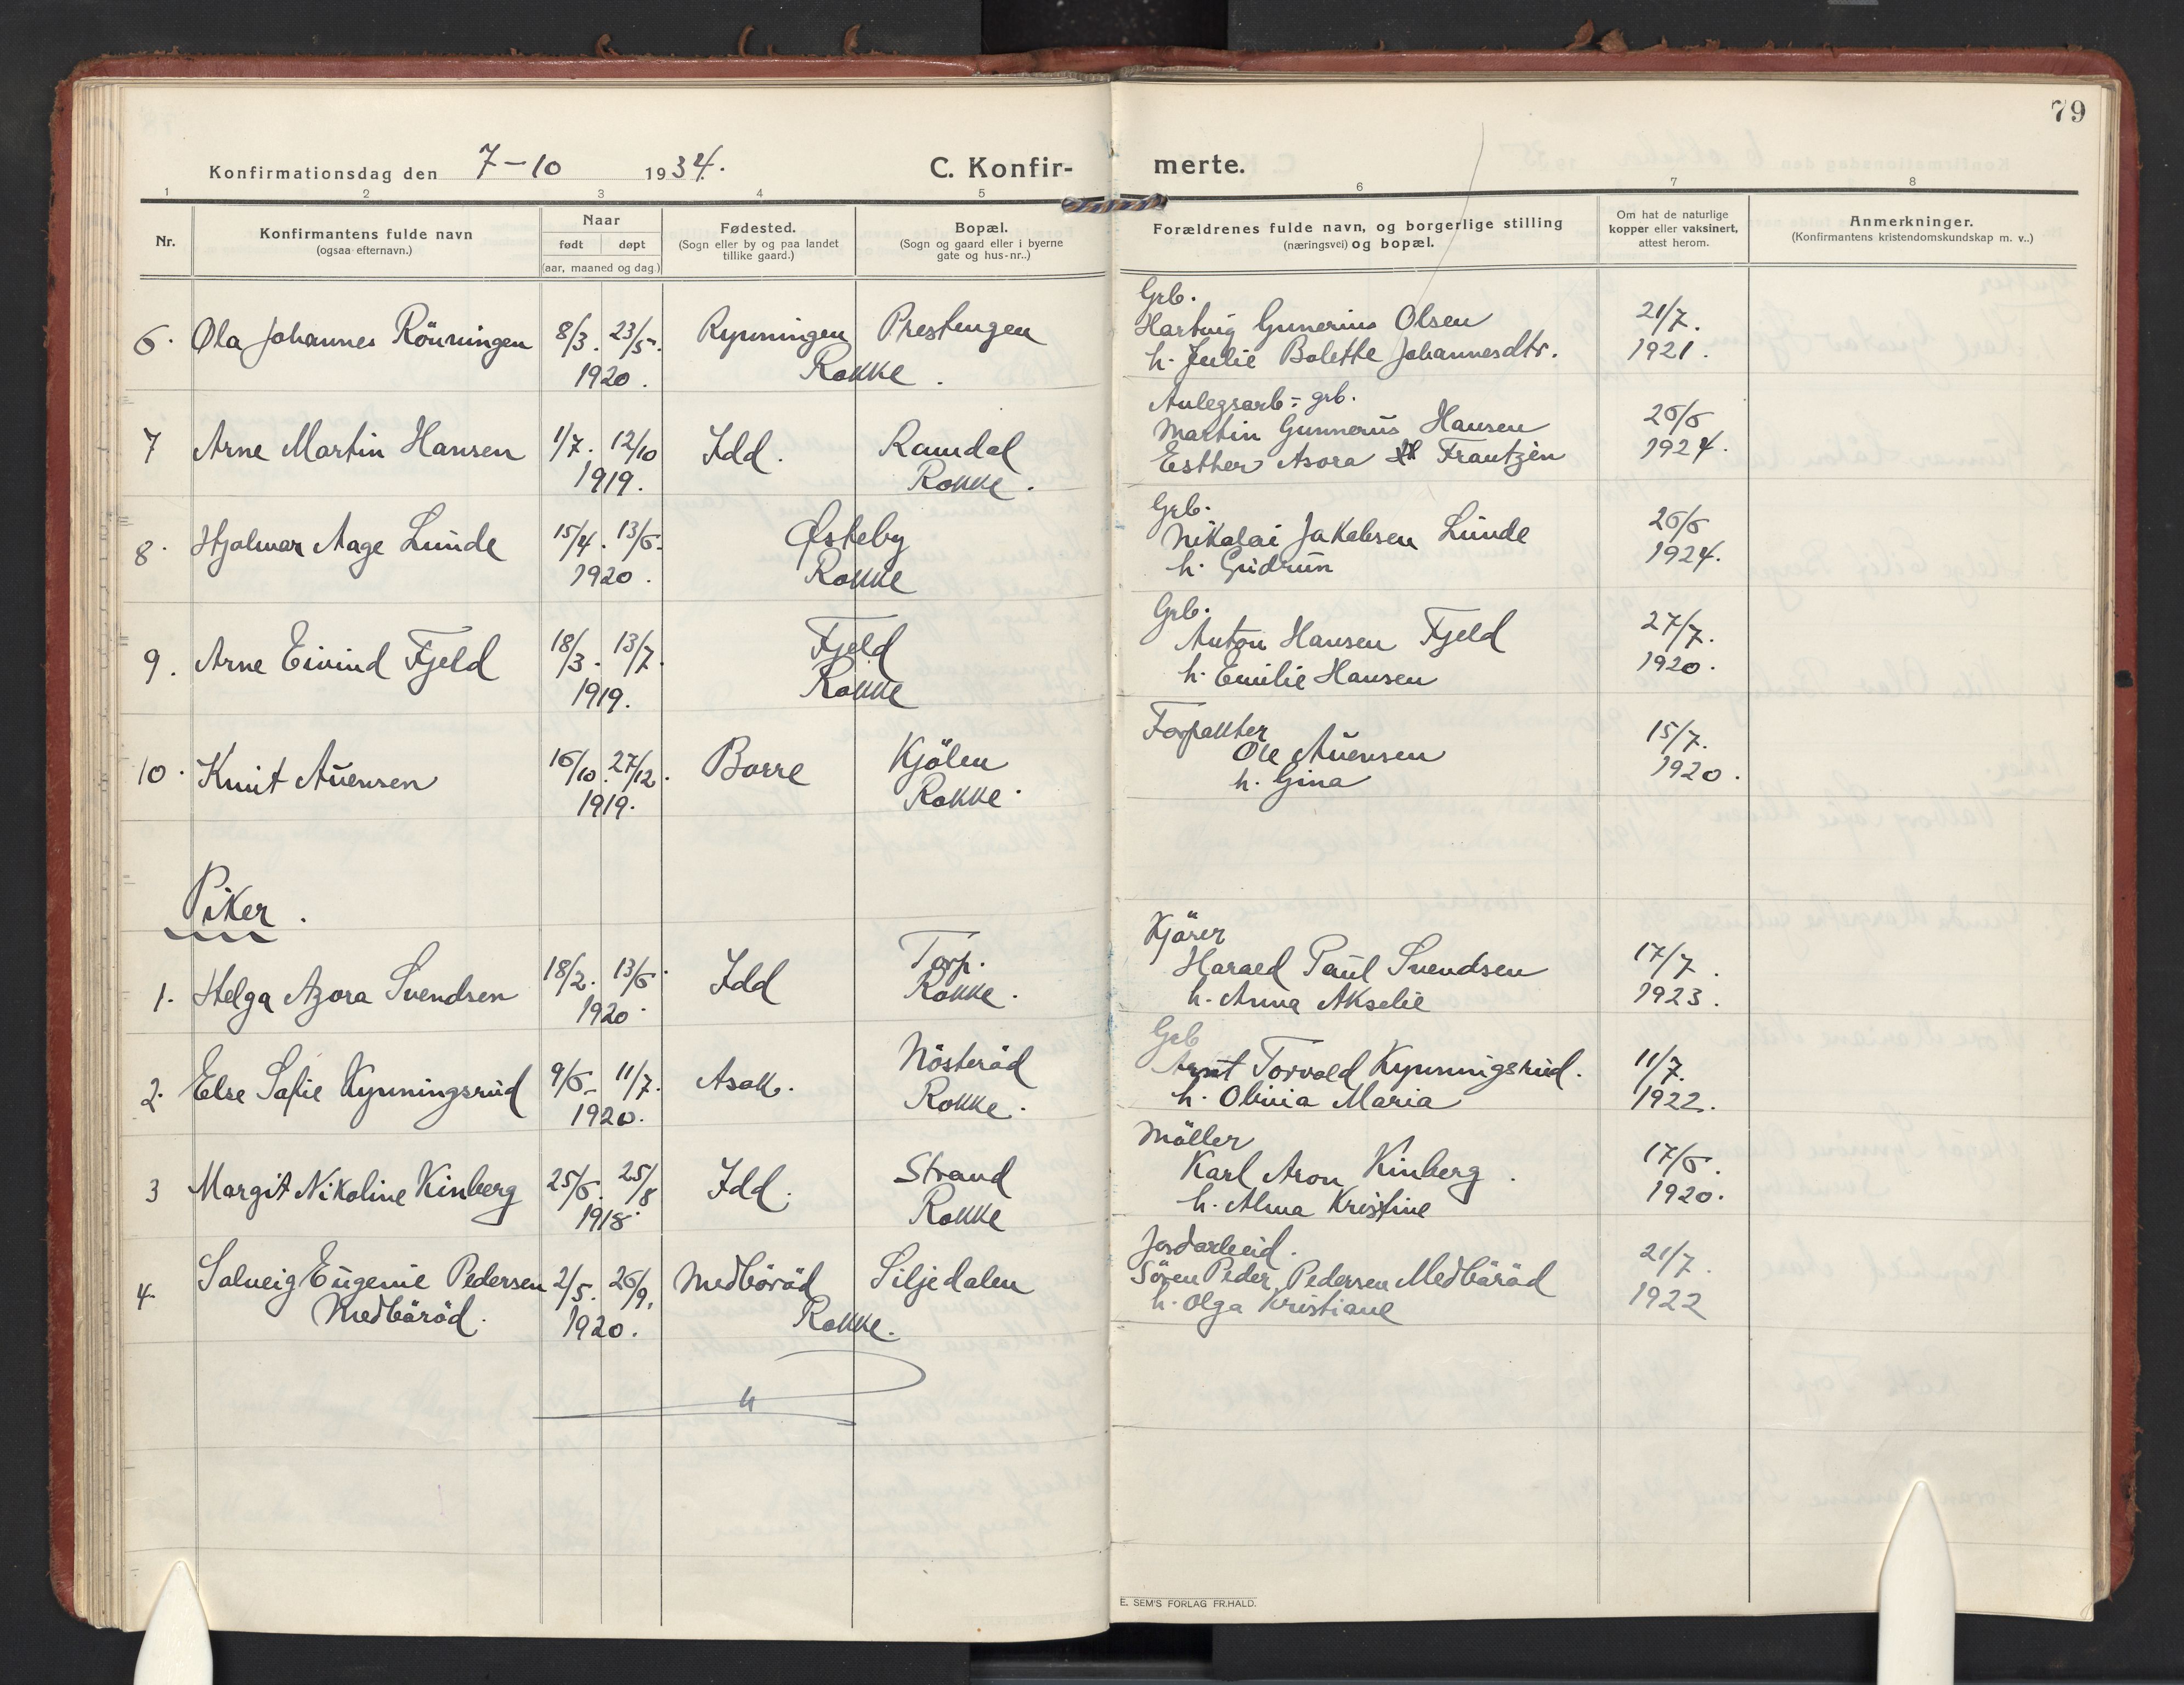 79
Konfirmationsdag den 7-10 1934.
C. Konfir-
merte.
1 2 3 4 5 6 7 8
Nr.
Konfirmantens fulde navn
(ogsaa efternavn.)
Naar
født døpt
(aar, maaned og dag.)
Fødested.
(Sogn eller by og paa landet
tillike gaard.)
Bopæl.
(Sogn og gaard eller i byerne
gate og hus-nr..)
Forældrenes fulde navn, og borgerlige stilling
(næringsvei) og bopæl.
Om hat de naturlige
kopper eller vaksinert,
attest herom.
Anmerkninger.
(Konfirmantens kristendomskundskap m. v..)
Grb.
6. Ola Johannes Rönningen 8/3. 23/5. Prestengen Hartvig Gunerius Olsen 21/7.
1920. Rokke. h. Julie Bolette Johannesdtr. 1921.
Anlegsarb = grb.
7 Arne Martin Hansen 1/7. 12/10 Idd. Ramdal Martin Gunnerus Hansen 26/6
1919. Rokke. Esther Asora Frantzen 1924.
Grb.
8. Hjalmar Aage Lunde 15/4. 13/6. Østeby Nikolai Jakobsen Lunde 26/6
1920. Rokke h. Gudrun 1924.
Grb.
9. Arne Eivind Fjeld 18/3. 13/7. Fjeld Anton Hansen Fjeld 27/7.
1919. Rokke h. Emilie Hansen 1920.
Forpakter
10. Knut Auensen 16/10. 27/12. Borre Kjölen Ole Auensen 15/7.
1919. Rokke. h. Gina 1920.
Piker.
Kjörer
1. Helga Azora Svendsen 18/2. 13/6. Idd Torp. Harald Paul Svendsen 17/7.
1920. Rokke. h. Anna Akselie 1923.
Grb
2. Else Sofie Kynningsrud 9/6- 11/7. Asak. Nösteröd Arnt Torvald Kynningsrud. 11/7.
1920. Rokke. h. Olivia Maria 1922.
Möller
3 Margit Nikoline Kinberg 25/6. 25/8 Idd. Strand Karl Aron Kinberg. 17/6.
1918. Rokke h. Alma Kristine 1920.
Jordarbeid.
4. Solveig Eugenie Pedersen 2/5. 26/9. Medböröd Siljedalen Sören Peder Pedersen Medböröd 21/7.
Medböröd. 1920. Rokke. h. Olga Kristiane 1922
E. SEM'S FORLAG FR.HALD.